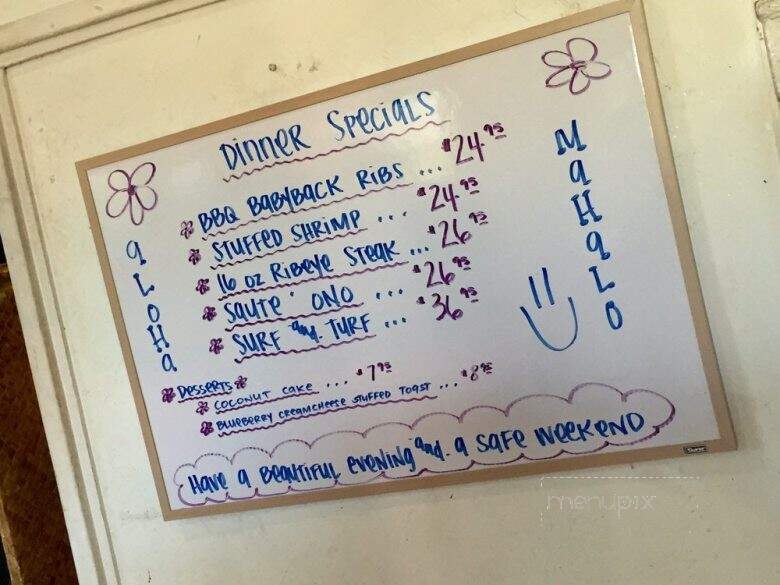 DINNER SPECIALS
BBQ BABYBACK RIBS ... $24.95
STUFFED SHRIMP ... $24.95
16 oz RIBEYE STEAK ... $26.95
SAUTE' ONO ... $26.95
SURF and. TURF ... $36.95
DESSERTS
COCONUT CAKE ... $7.95
BLUEBERRY CREAMCHEESE STUFFED TOAST ... $8.95
HAVE A BEAUTIFUL EVENING and. A SAFE WEEKEND
ALOHA
MAHALO
menupix